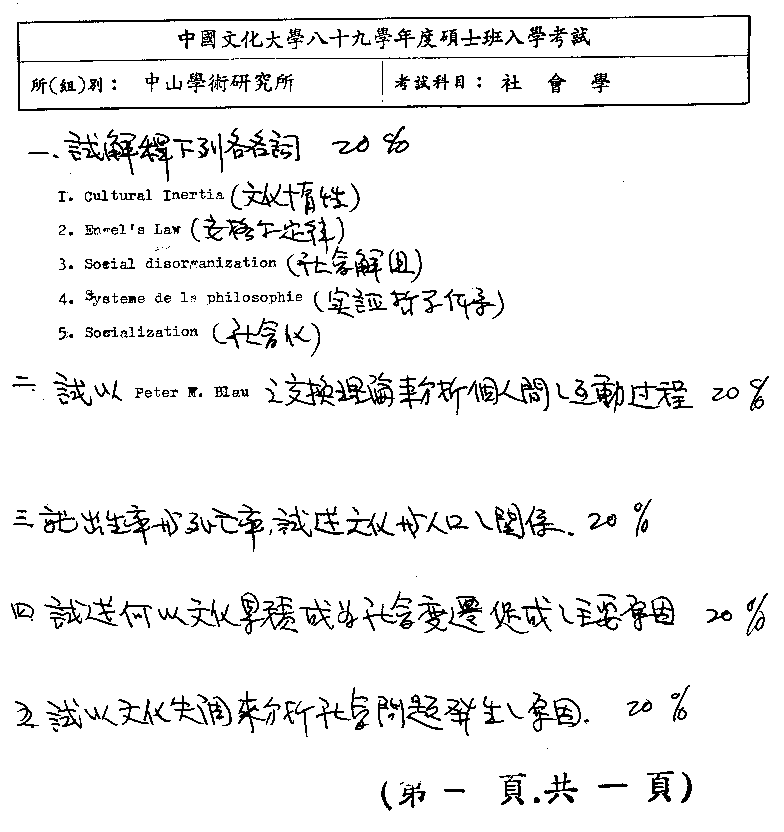 中國文化大學八十九學年度碩士班入學考試
所(組)別： 中山學術研究所 考試科目： 社 會 學
一、試解釋下列各名詞 20%
1. Cultural Inertia (文化惰性)
2. Engel's Law (安格尔定律)
3. Social disorganization (社会解组)
4. Systeme de la philosophie (实証哲学体系)
5. Socialization (社会化)
二 試以 Peter M. Blau 之交換理論來分析個人間之互動过程 20%
三 就出生率与死亡率，試述文化与人口之関係. 20%
四 試述何以文化累積成为社会変遷促成之主要原因 20%
五 試以文化失调來分析社会問題発生之原因. 20%
(第 一 頁.共 一 頁)